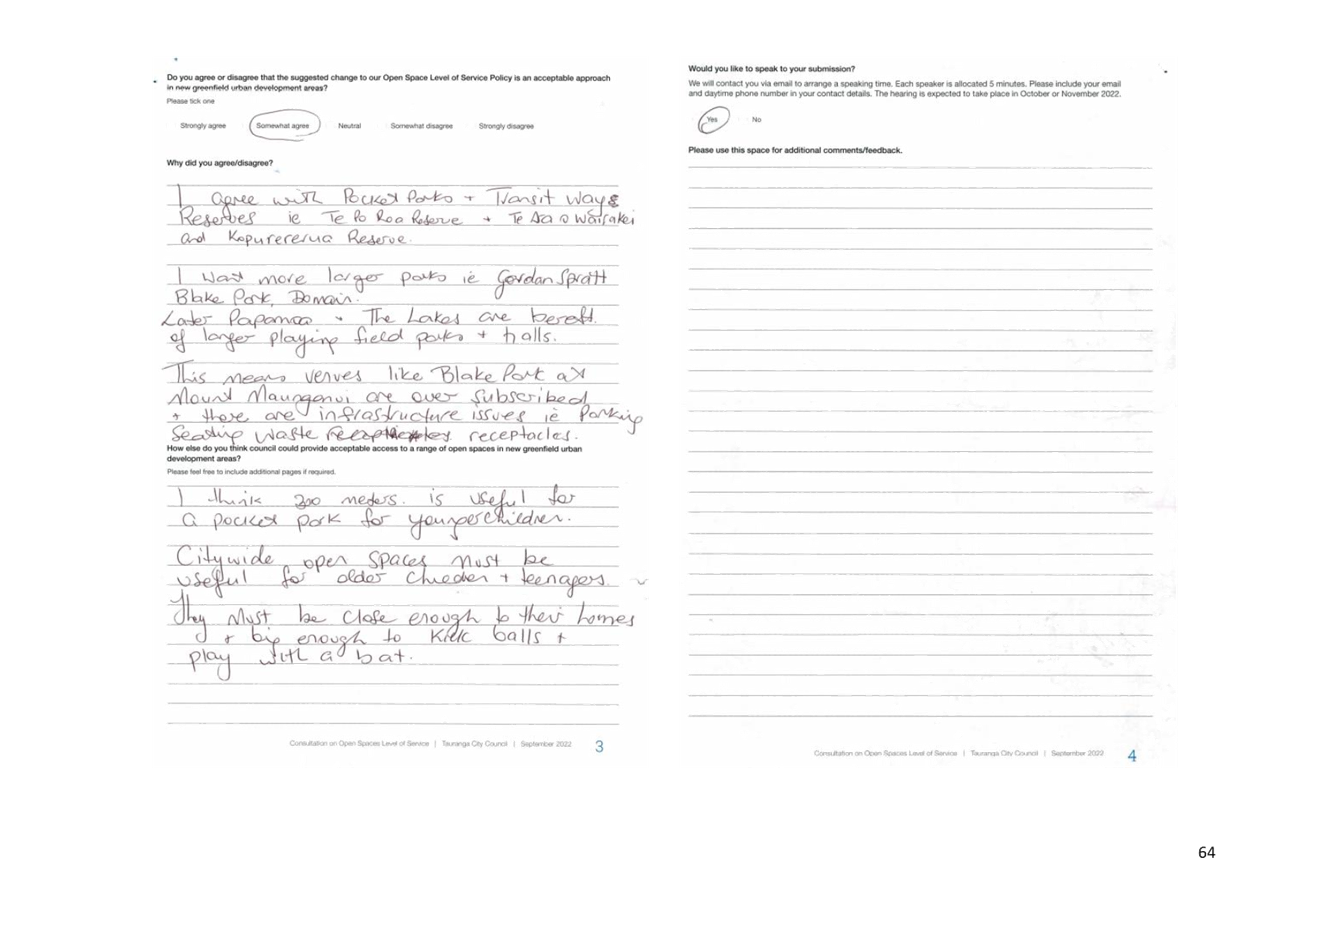 Do you agree or disagree that the suggested change to our Open Space Level of Service Policy is an acceptable approach
in new greenfield urban development areas?
Please tick one
Strongly agree Somewhat agree Neutral Somewhat disagree Strongly disagree
Why did you agree/disagree?
I agree with Pocket Parks + Transit Ways
Reserves ie Te Po Roa Reserve + Te Ara o Wairakei
and Kopurererua Reserve.
I want more larger parks ie Gordan Spratt
Blake Park, Domain.
Later Papamoa + The Lakes are bereft
of larger playing field parks + halls.
This means verves like Blake Park at
Mount Maunganui are over subscribed
+ there are infrastructure issues ie Parking
Seating waste receptacles.
How else do you think council could provide acceptable access to a range of open spaces in new greenfield urban
development areas?
Please feel free to include additional pages if required.
I think 300 meters. is useful for
a pocket park for younger children.
Citywide open spaces must be
useful for older + teenagers.
They must be close enough to their homes
+ big enough to kick balls +
play with a bat.
Consultation on Open Spaces Level of Service | Tauranga City Council | September 2022 3
Would you like to speak to your submission?
We will contact you via email to arrange a speaking time. Each speaker is allocated 5 minutes. Please include your email
and daytime phone number in your contact details. The hearing is expected to take place in October or November 2022.
Yes No
Please use this space for additional comments/feedback.
Consultation on Open Spaces Level of Service | Tauranga City Council | September 2022 4
64